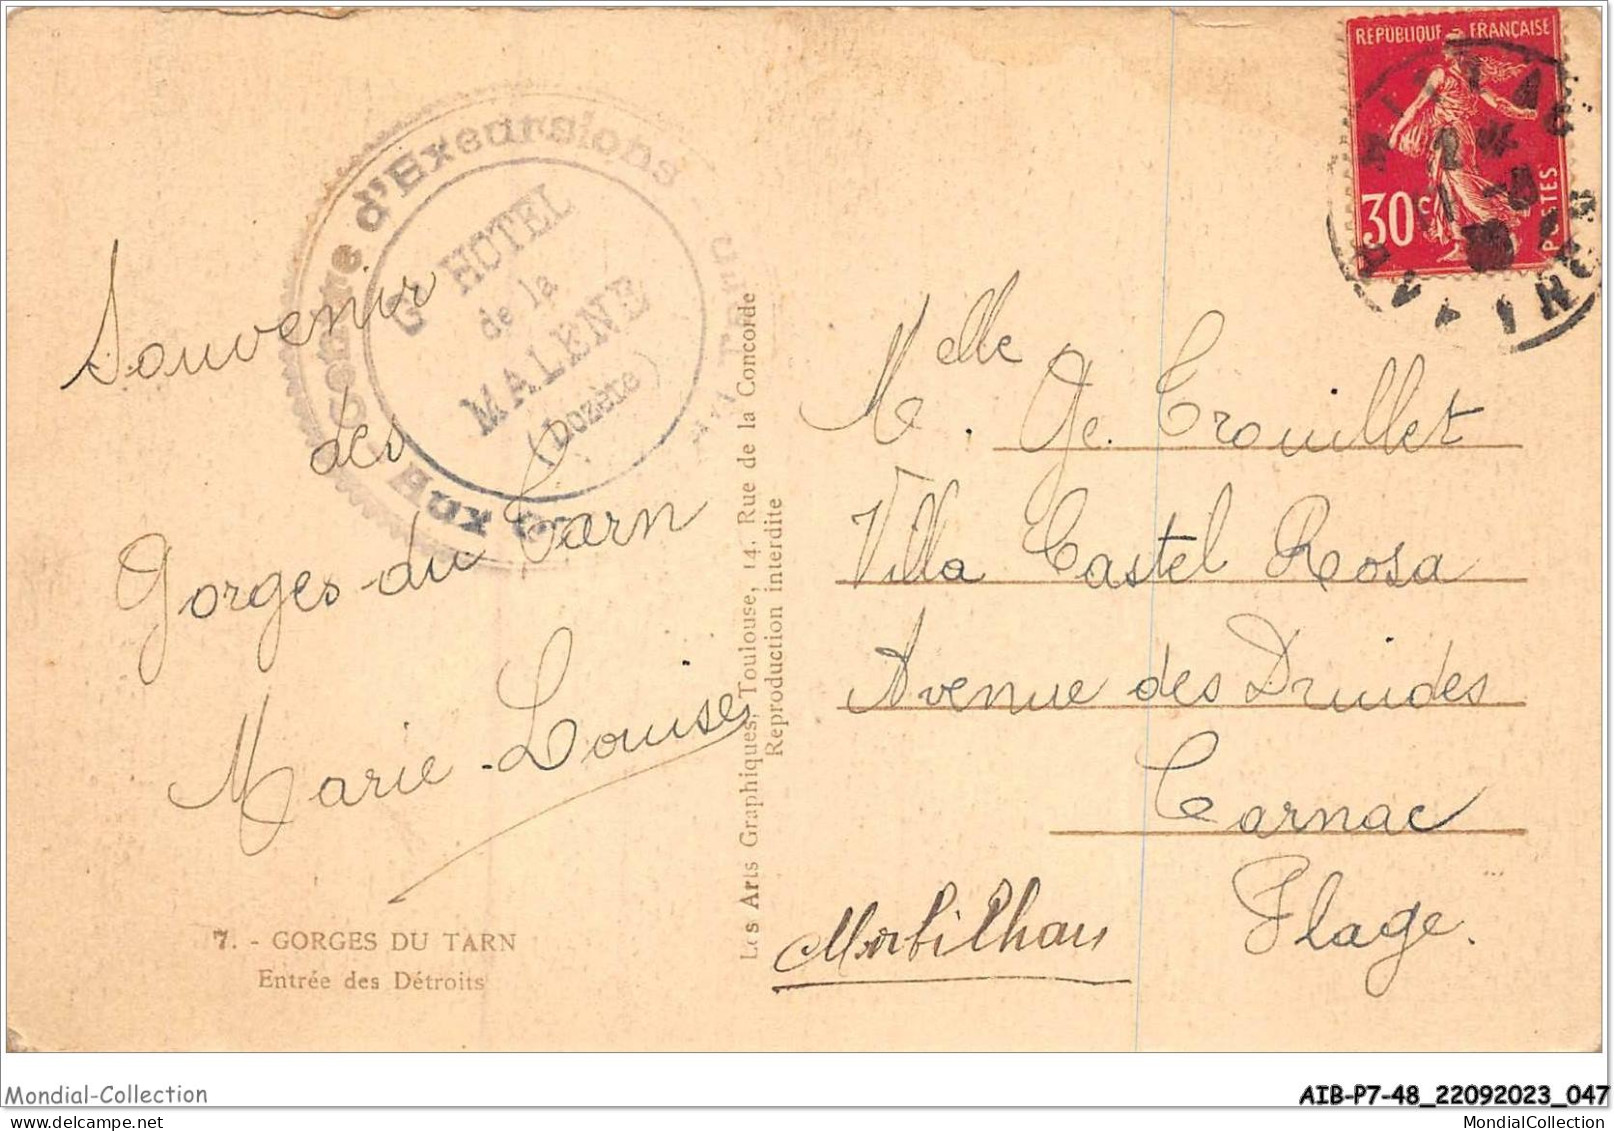 Souvenir
des
Gorges du Tarn
Marie-Louise
7. - GORGES DU TARN
Entrée des Détroits
d'Excursions
Gd HOTEL
de la
MALENE
(Lozère)
Les Arts Graphiques, Toulouse, 14, Rue de la Concorde
Reproduction interdite
REPUBLIQUE FRANÇAISE
30c
POSTES
Melle. Ge. Trouillet
Villa Castel Rosa
Avenue des Druides
Carnac
Plage.
Morbilhan
Mondial-Collection
AIB-P7-48_22092023_047
MondialCollection
MondialCollection